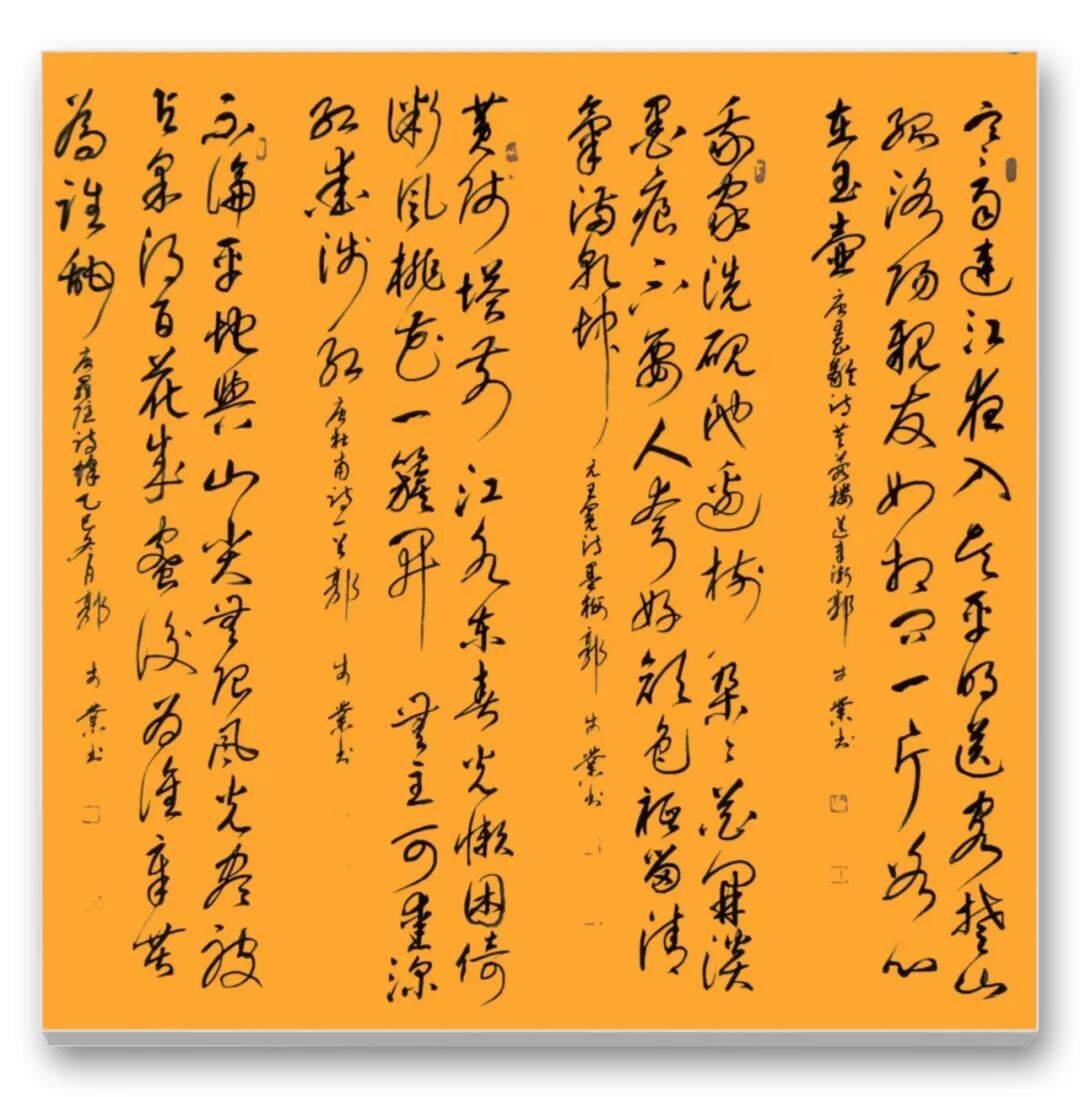 寒雨連江夜入吴平明送客楚山
孤洛陽親友如相问一片冰心
在玉壺 唐王昌齡诗芙蓉樓送辛渐郭 業书
我家洗砚池邊树 朵々花開淡
墨痕不要人夸好颜色祗留清
氣满乾坤 元王冕诗墨梅郭 業书
黄师塔前江水東春光懒困倚
微风桃花一簇開 無主可愛深
红爱浅红 唐杜甫诗一首郭 業书
不論平地與山尖無限风光盡被
占采得百花成蜜後为谁辛苦
為谁甜 唐羅隐诗蜂乙巳冬月郭 業书